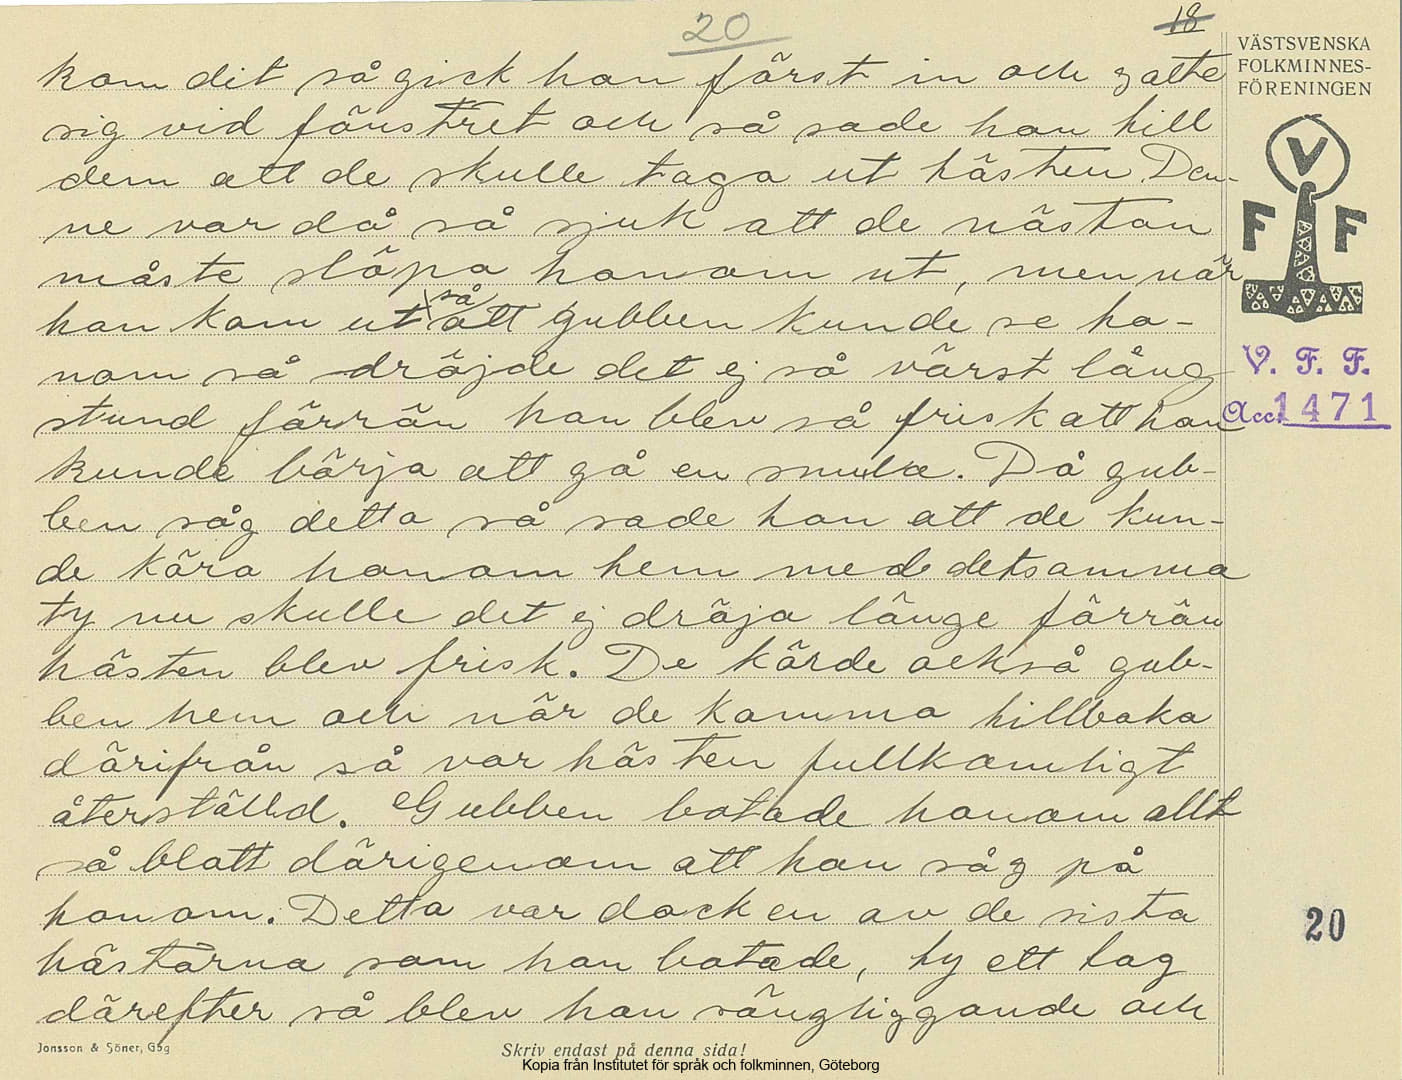 20
18
kom dit så gick han först in och satte
sig vid fönstret och så sade han till
dem att de skulle taga ut hästen Den-
ne var då så sjuk att de nästan
måste släpa honom ut, men när
han kom ut så att gubben kunde se ho-
nom så dröjde det ej så värst lång
stund förrän han blev så frisk att han
kunde börja att gå en smula. Då gub-
ben såg detta så sade han att de kun-
de köra honom hem med detsamma
ty nu skulle det ej dröja länge förrän
hästen blev frisk. De körde också gub-
ben hem och när de kommo tillbaka
därifrån så var hästen fullkomligt
återställd. Gubben botade honom allt
så blott därigenom att han såg på
honom. Detta var dock en av de sista
hästarna som han botade, ty ett tag
därefter så blev han sängliggande och
VÄSTSVENSKA
FOLKMINNES-
FÖRENINGEN
V
F F
V. F. F.
Acc. 1471
20
Jonsson & Söner, Gbg
Skriv endast på denna sida!
Kopia från Institutet för språk och folkminnen, Göteborg